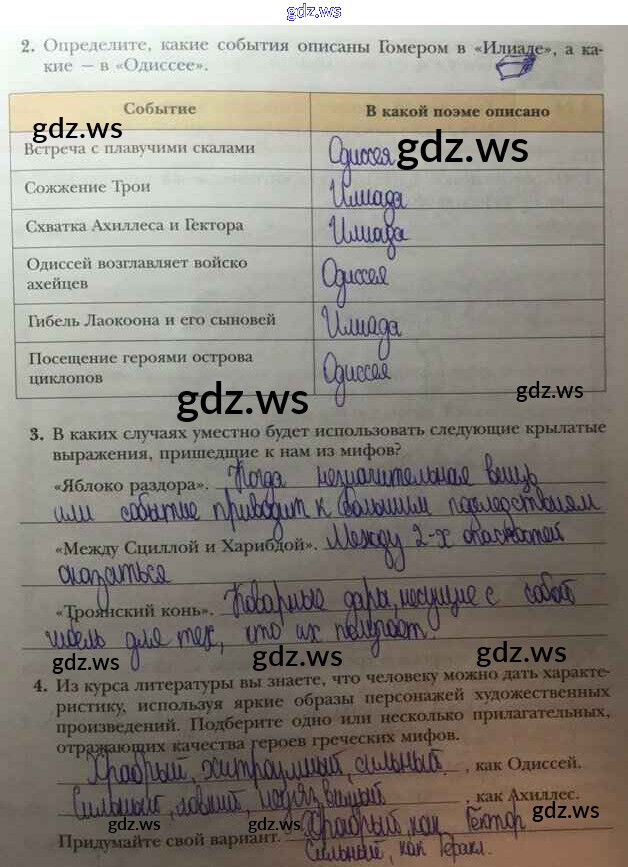 gdz.ws
2. Определите, какие события описаны Гомером в «Илиаде», а ка-
кие — в «Одиссее».
Событие В какой поэме описано
gdz.ws
gdz.ws
Встреча с плавучими скалами Одиссея
Сожжение Трои Илиада
Схватка Ахиллеса и Гектора Илиада
Одиссей возглавляет войско
ахейцев Одиссея
Гибель Лаокоона и его сыновей Илиада
Посещение героями острова
циклопов Одиссея
gdz.ws
gdz.ws
3. В каких случаях уместно будет использовать следующие крылатые
выражения, пришедшие к нам из мифов?
«Яблоко раздора». Когда незначительная вещь
или событие приводит к большим последствиям
gdz.ws
gdz.ws
«Между Сциллой и Харибдой». Между 2-х опасностей
оказаться
gdz.ws
«Троянский конь». Коварные дары, несущие с собой
гибель для тех, кто их получает.
gdz.ws
gdz.ws
gdz.ws
4. Из курса литературы вы знаете, что человеку можно дать характе-
ристику, используя яркие образы персонажей художественных
произведений. Подберите одно или несколько прилагательных,
отражающих качества героев греческих мифов.
gdz.ws
gdz.ws
Храбрый, хитроумный, сильный, как Одиссей.
Сильный, ловкий, неуязвимый, как Ахиллес.
gdz.ws
gdz.ws
Придумайте свой вариант. Храбрый, как Гектор
Сильный, как Геракл.